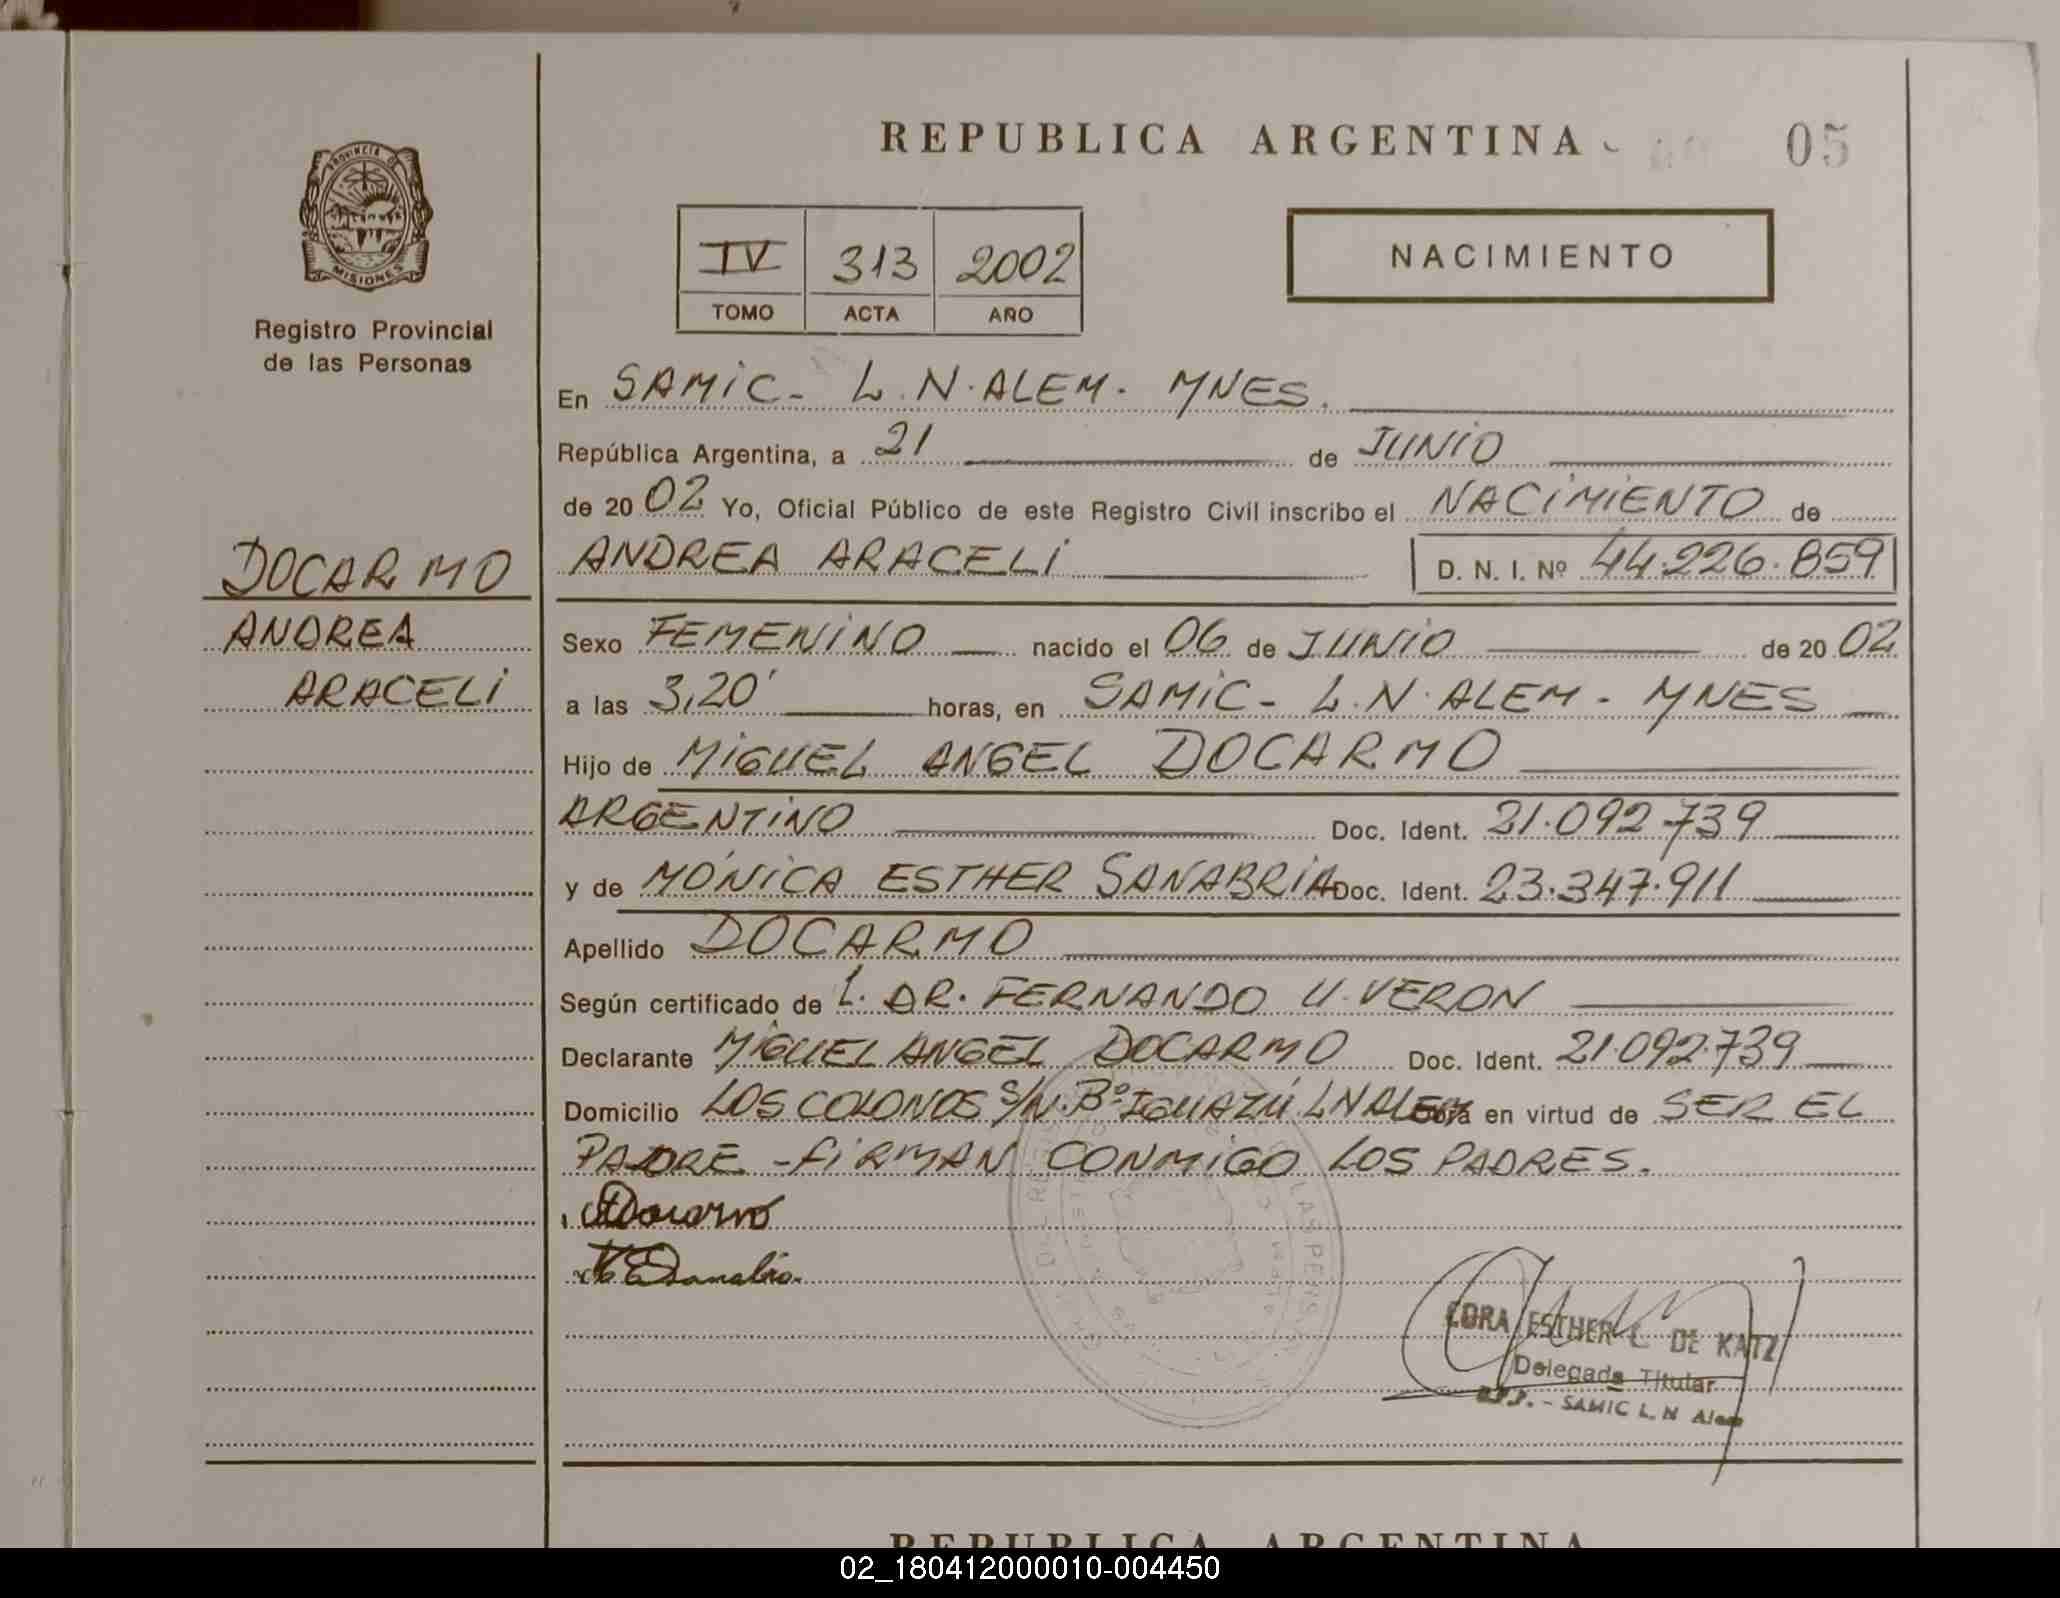 REPUBLICA ARGENTINA
05
PROVINCIA DE
MISIONES
Registro Provincial
de las Personas
IV 313 2002
TOMO ACTA AÑO
NACIMIENTO
En SAMIC - L.N. ALEM - MNES.
República Argentina, a 21 de JUNIO
de 20 02 Yo, Oficial Público de este Registro Civil inscribo el NACIMIENTO de
ANDREA ARACELI D. N. I. Nº 44.226.859
DOCARMO
ANDREA
ARACELI
Sexo FEMENINO nacido el 06 de JUNIO de 20 02
a las 3,20' horas, en SAMIC - L.N. ALEM - MNES
Hijo de MIGUEL ANGEL DOCARMO
ARGENTINO Doc. Ident. 21.092.739
y de MÓNICA ESTHER SANABRIA Doc. Ident. 23.347.911
Apellido DOCARMO
Según certificado de L. DR. FERNANDO U. VERON
Declarante MIGUEL ANGEL DOCARMO Doc. Ident. 21.092.739
Domicilio LOS COLONOS S/N. Bº IGUAZÚ. L N ALEM Obra en virtud de SER EL
PADRE - FIRMAN CONMIGO LOS PADRES.
CORA ESTHER C. DE KATZ
Delegada Titular
R.P.P. - SAMIC L. N. Alem
REPUBLICA ARGENTINA
02_180412000010-004450